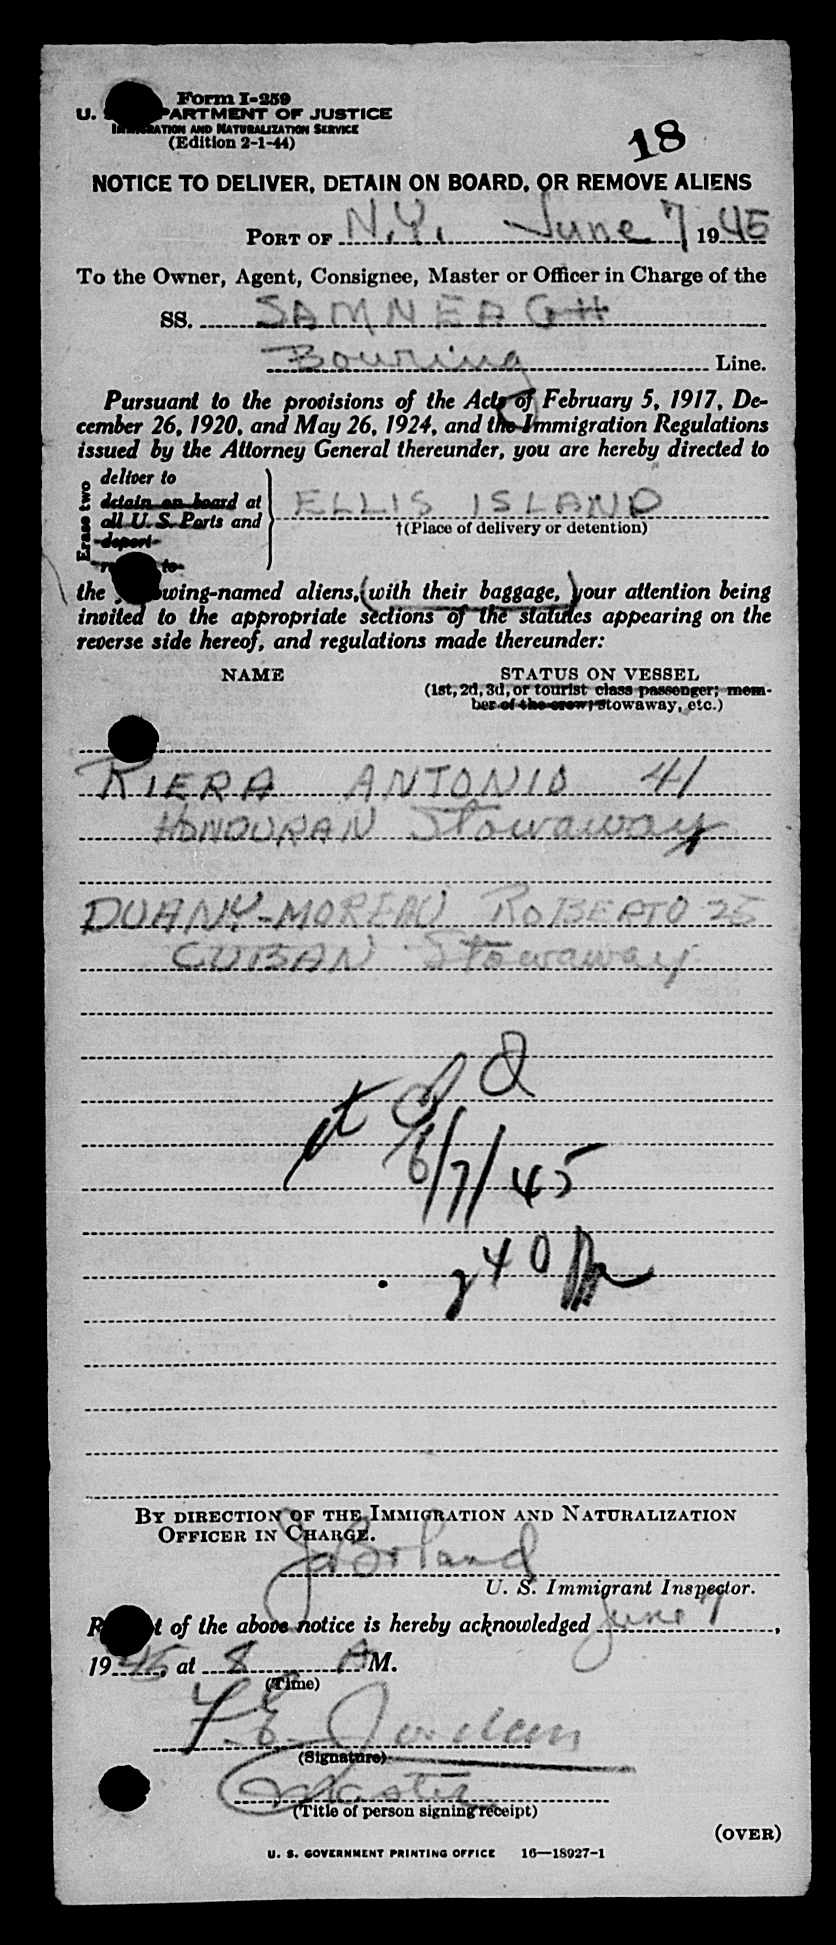 Form I-259
U. S. DEPARTMENT OF JUSTICE
IMMIGRATION AND NATURALIZATION SERVICE
(Edition 2-1-44)
18
NOTICE TO DELIVER, DETAIN ON BOARD, OR REMOVE ALIENS
PORT OF N.Y. June 7 1945
To the Owner, Agent, Consignee, Master or Officer in Charge of the
SS. SAMNEAGH
Bowring Line.
Pursuant to the provisions of the Acts of February 5, 1917, De-
cember 26, 1920, and May 26, 1924, and the Immigration Regulations
issued by the Attorney General thereunder, you are hereby directed to
Erase two
deliver to
detain on board at
all U. S. Ports and
deport
to
ELLIS ISLAND
†(Place of delivery or detention)
the following-named aliens, (with their baggage,) your attention being
invited to the appropriate sections of the statutes appearing on the
reverse side hereof, and regulations made thereunder:
NAME STATUS ON VESSEL
(1st, 2d, 3d, or tourist class passenger; mem-
ber of the crew; stowaway, etc.)
RIERA ANTONIO 41
HONDURAN Stowaway
DUANY-MOREAU ROBERTO 25
CUBAN Stowaway
6/7/45
240
BY DIRECTION OF THE IMMIGRATION AND NATURALIZATION
OFFICER IN CHARGE.
U. S. Immigrant Inspector.
Receipt of the above notice is hereby acknowledged June 7,
1945, at 8 AM.
(Time)
F. E. Jordan
(Signature)
Master
(Title of person signing receipt)
(OVER)
U. S. GOVERNMENT PRINTING OFFICE 16—18927-1